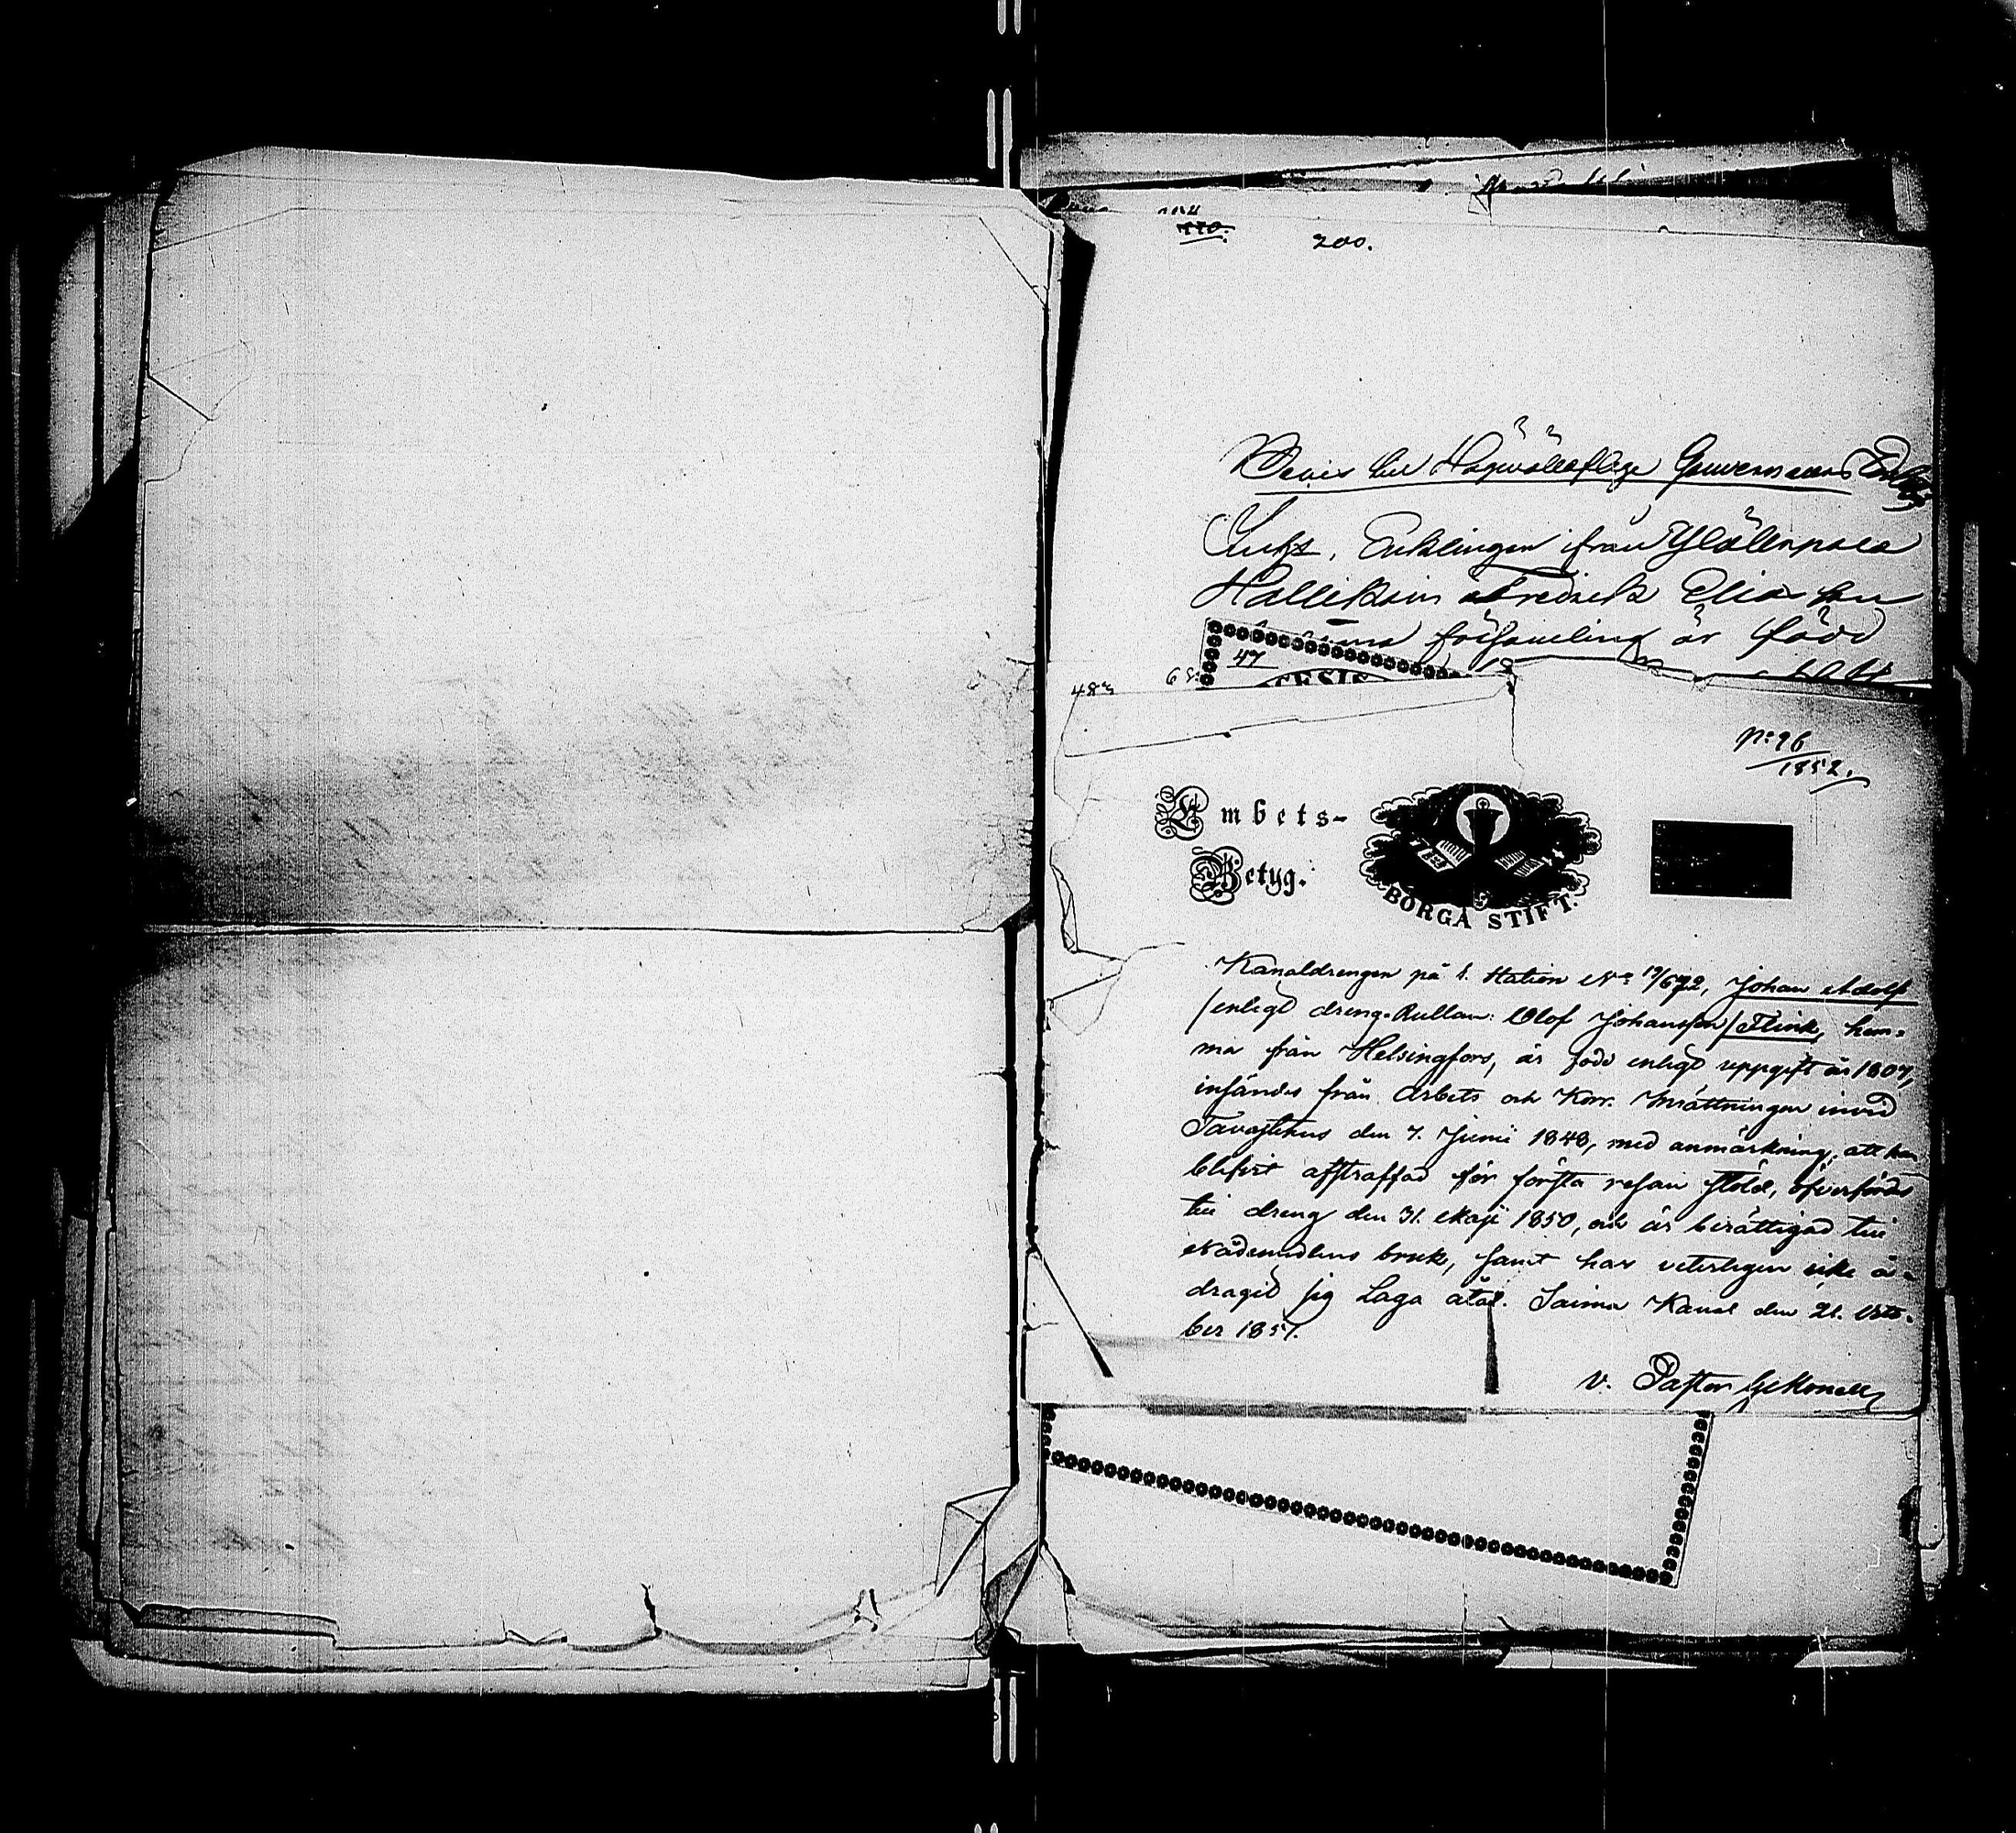 200.
Bevis till Högvälloflige Gouverneurs
Enklingen ifrån
Hallikain Fredrick Elias son
församling är född
47
68
483
No 96
1852.
Embets-
Betyg.
BORGÅ STIFT.
Kanaldrengen på 1. Station No 19/672, Johan Adolf
/enligt dreng-Rullan: Olof Johansson/ Flink, hem-
ma från Helsingfors, är född enligt uppgift år 1807,
insändes från Arbets och Korr. Inrättningen invid
Tavastehus den 7. Junii 1848, med anmärkning, att han
blifvit afstraffad för första resan stöld, öfverfördes
till dreng den 31. Maji 1850, och är berättigad till
Nådemedlens bruk, samt har veterligen icke å-
dragit sig Laga åtal. Saima Kanal den 21. Octo-
ber 1851.
v. Pastor